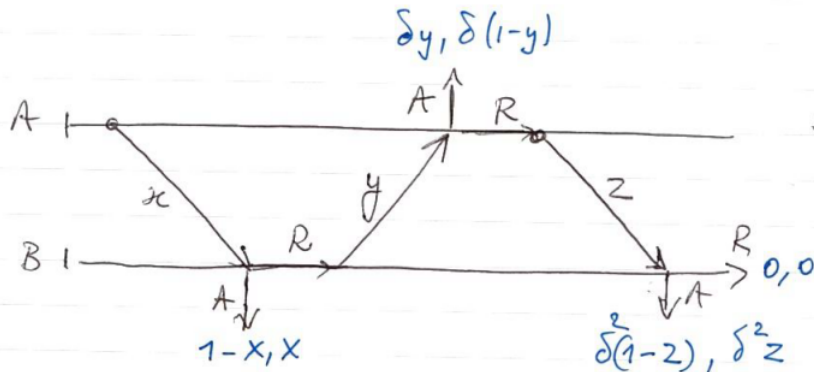 δy, δ(1-y)
A R
A
x y z
B R R 0,0
A A
1-x, x δ²(1-z), δ²z